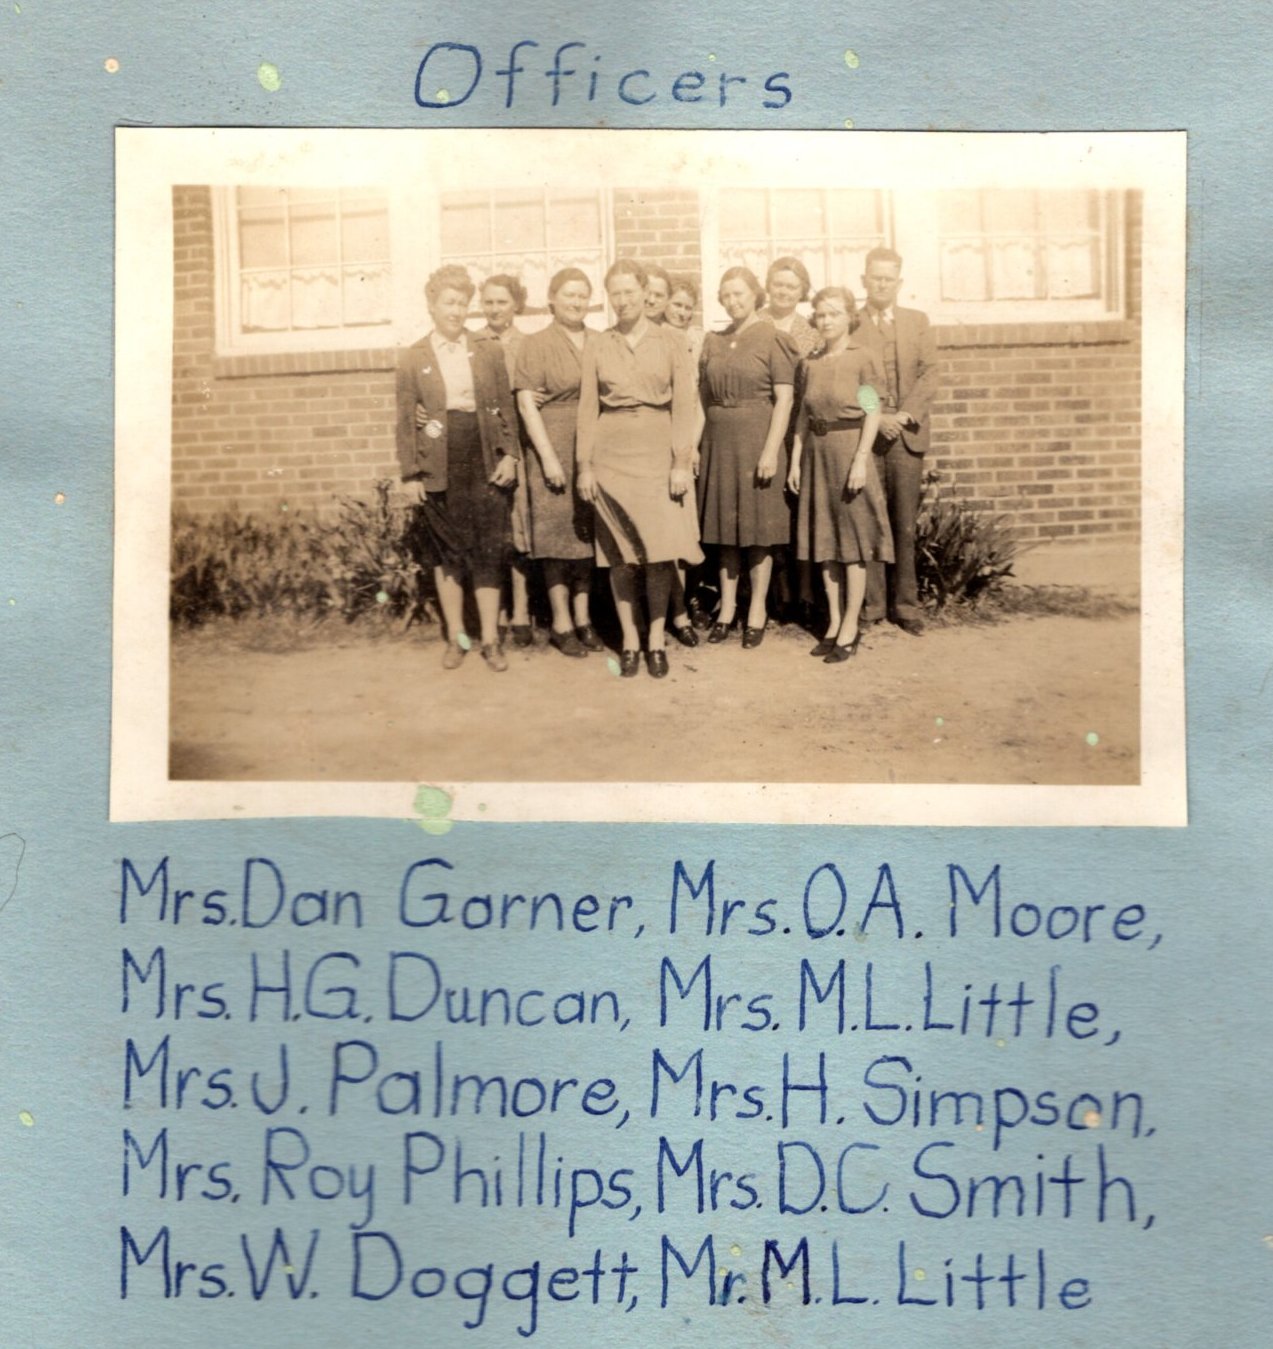 Officers
Mrs. Dan Garner, Mrs. O.A. Moore,
Mrs. H.G. Duncan, Mrs. M.L. Little,
Mrs. J. Palmore, Mrs. H. Simpson.
Mrs. Roy Phillips, Mrs. D.C. Smith,
Mrs. W. Doggett, Mr. M.L. Little